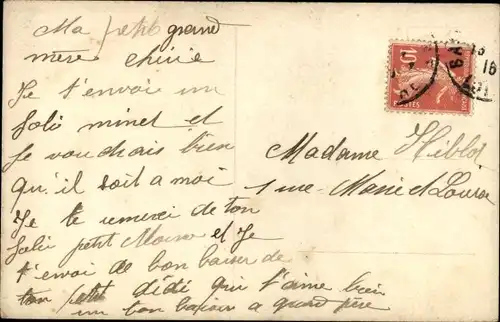 Ma petit grand
mere cherie
Je t'envoi un
Joli minet et
Je voudrais bien
qu'il soit a moi
Je te remerci de ton
Joli petit Moine et Je
t'envoi de bon baiser de
ton petit dédé qui t'aime bien
un bon baiser a grand père
10
POSTES
18
Madame Hiblot
1 rue Marie et Louise